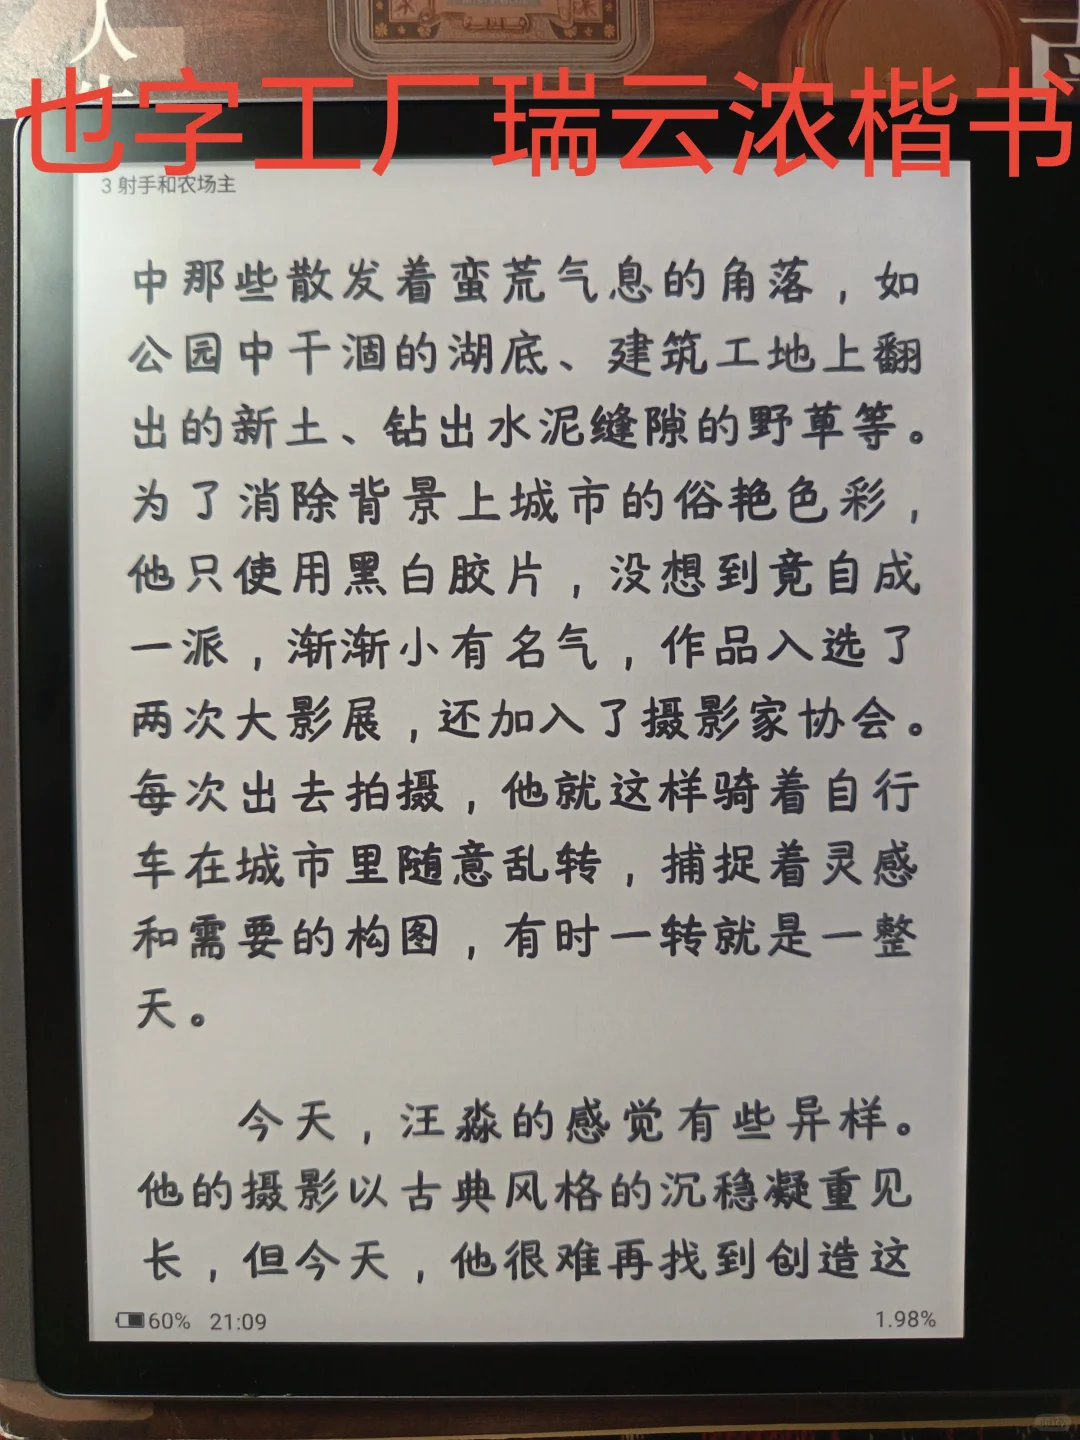 人
也字工厂瑞云浓楷书
3 射手和农场主
中那些散发着蛮荒气息的角落，如
公园中干涸的湖底、建筑工地上翻
出的新土、钻出水泥缝隙的野草等。
为了消除背景上城市的俗艳色彩，
他只使用黑白胶片，没想到竟自成
一派，渐渐小有名气，作品入选了
两次大影展，还加入了摄影家协会。
每次出去拍摄，他就这样骑着自行
车在城市里随意乱转，捕捉着灵感
和需要的构图，有时一转就是一整
天。
今天，汪淼的感觉有些异样。
他的摄影以古典风格的沉稳凝重见
长，但今天，他很难再找到创造这
60% 21:09
1.98%